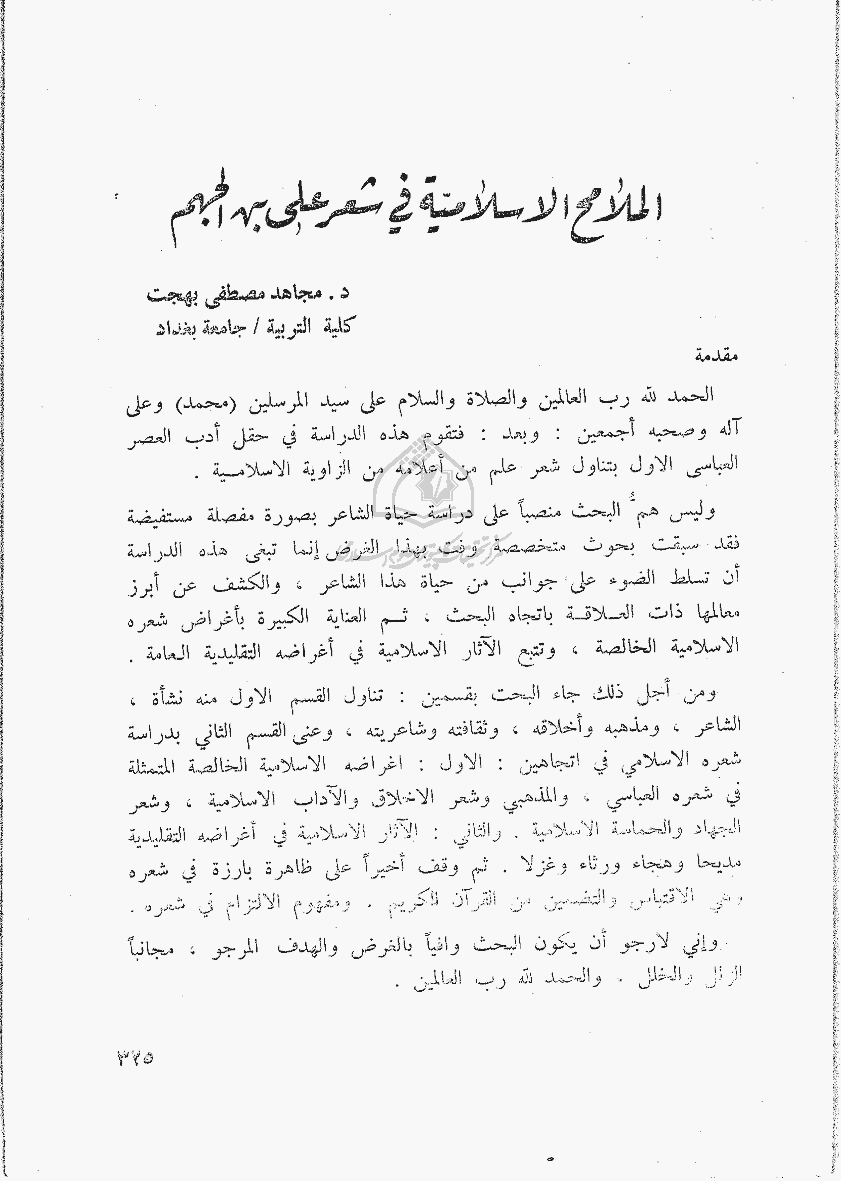 الملامح الاسلامية في شعر علي بن الجهم
د . مجاهد مصطفى بهجت
كلية التربية / جامعة بغداد
مقدمة
الحمد لله رب العالمين والصلاة والسلام على سيد المرسلين (محمد) وعلى
آله وصحبه أجمعين : وبعد : فتقوم هذه الدراسة في حقل أدب العصر
العباسي الاول بتناول شعر علم من أعلامه من الزاوية الاسلامية .
وليس همُّ البحث منصباً على دراسة حياة الشاعر بصورة مفصلة مستفيضة
نقد سبقت بحوث متخصصة وفت بهذا الغرض إنما تبغى هذه الدراسة
أن تسلط الضوء على جوانب من حياة هذا الشاعر ، والكشف عن أبرز
معالمها ذات العلاقة باتجاه البحث ، ثم العناية الكبيرة بأغراض شعره
الاسلامية الخالصة ، وتتبع الآثار الاسلامية في أغراضه التقليدية العامة .
ومن أجل ذلك جاء البحث بقسمين : تناول القسم الاول منه نشأة ،
الشاعر ، ومذهبه وأخلاقه ، وثقافته وشاعريته ، وعنى القسم الثاني بدراسة
شعره الاسلامي في اتجاهين : الاول : اغراضه الاسلامية الخالصة المتمثلة
في شعره العباسي ، والمذهبي وشعر الاخلاق والآداب الاسلامية ، وشعر
الجهاد والحماسة الاسلامية . والثاني : الآثار الاسلامية في أغراضه التقليدية
مديحا وهجاء ورثاء وغزلا . ثم وقف أخيراً على ظاهرة بارزة في شعره
وهي الاقتباس والتضمين من القرآن الكريم . ومفهوم الالتزام في شعره .
وإني لارجو أن يكون البحث وافياً بالغرض والهدف المرجو ، مجانباً
الزلل والخلل . والحمد لله رب العالمين .
٣٢٥